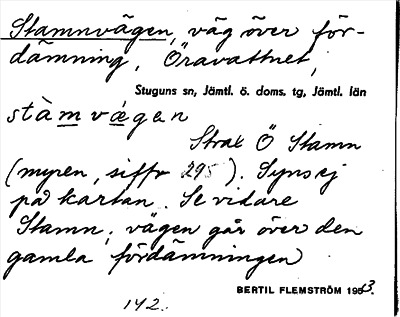 Stamnvägen, väg över för-
dämning, Öravattnet,
Stuguns sn, Jämtl. ö. doms. tg, Jämtl. län
stàmvä́gen
Strax Ö Stamn
(myren, siffr 295). Syns ej
på kartan. Se vidare
Stamn, vägen går över den
gamla fördämningen
BERTIL FLEMSTRÖM 1953.
142.